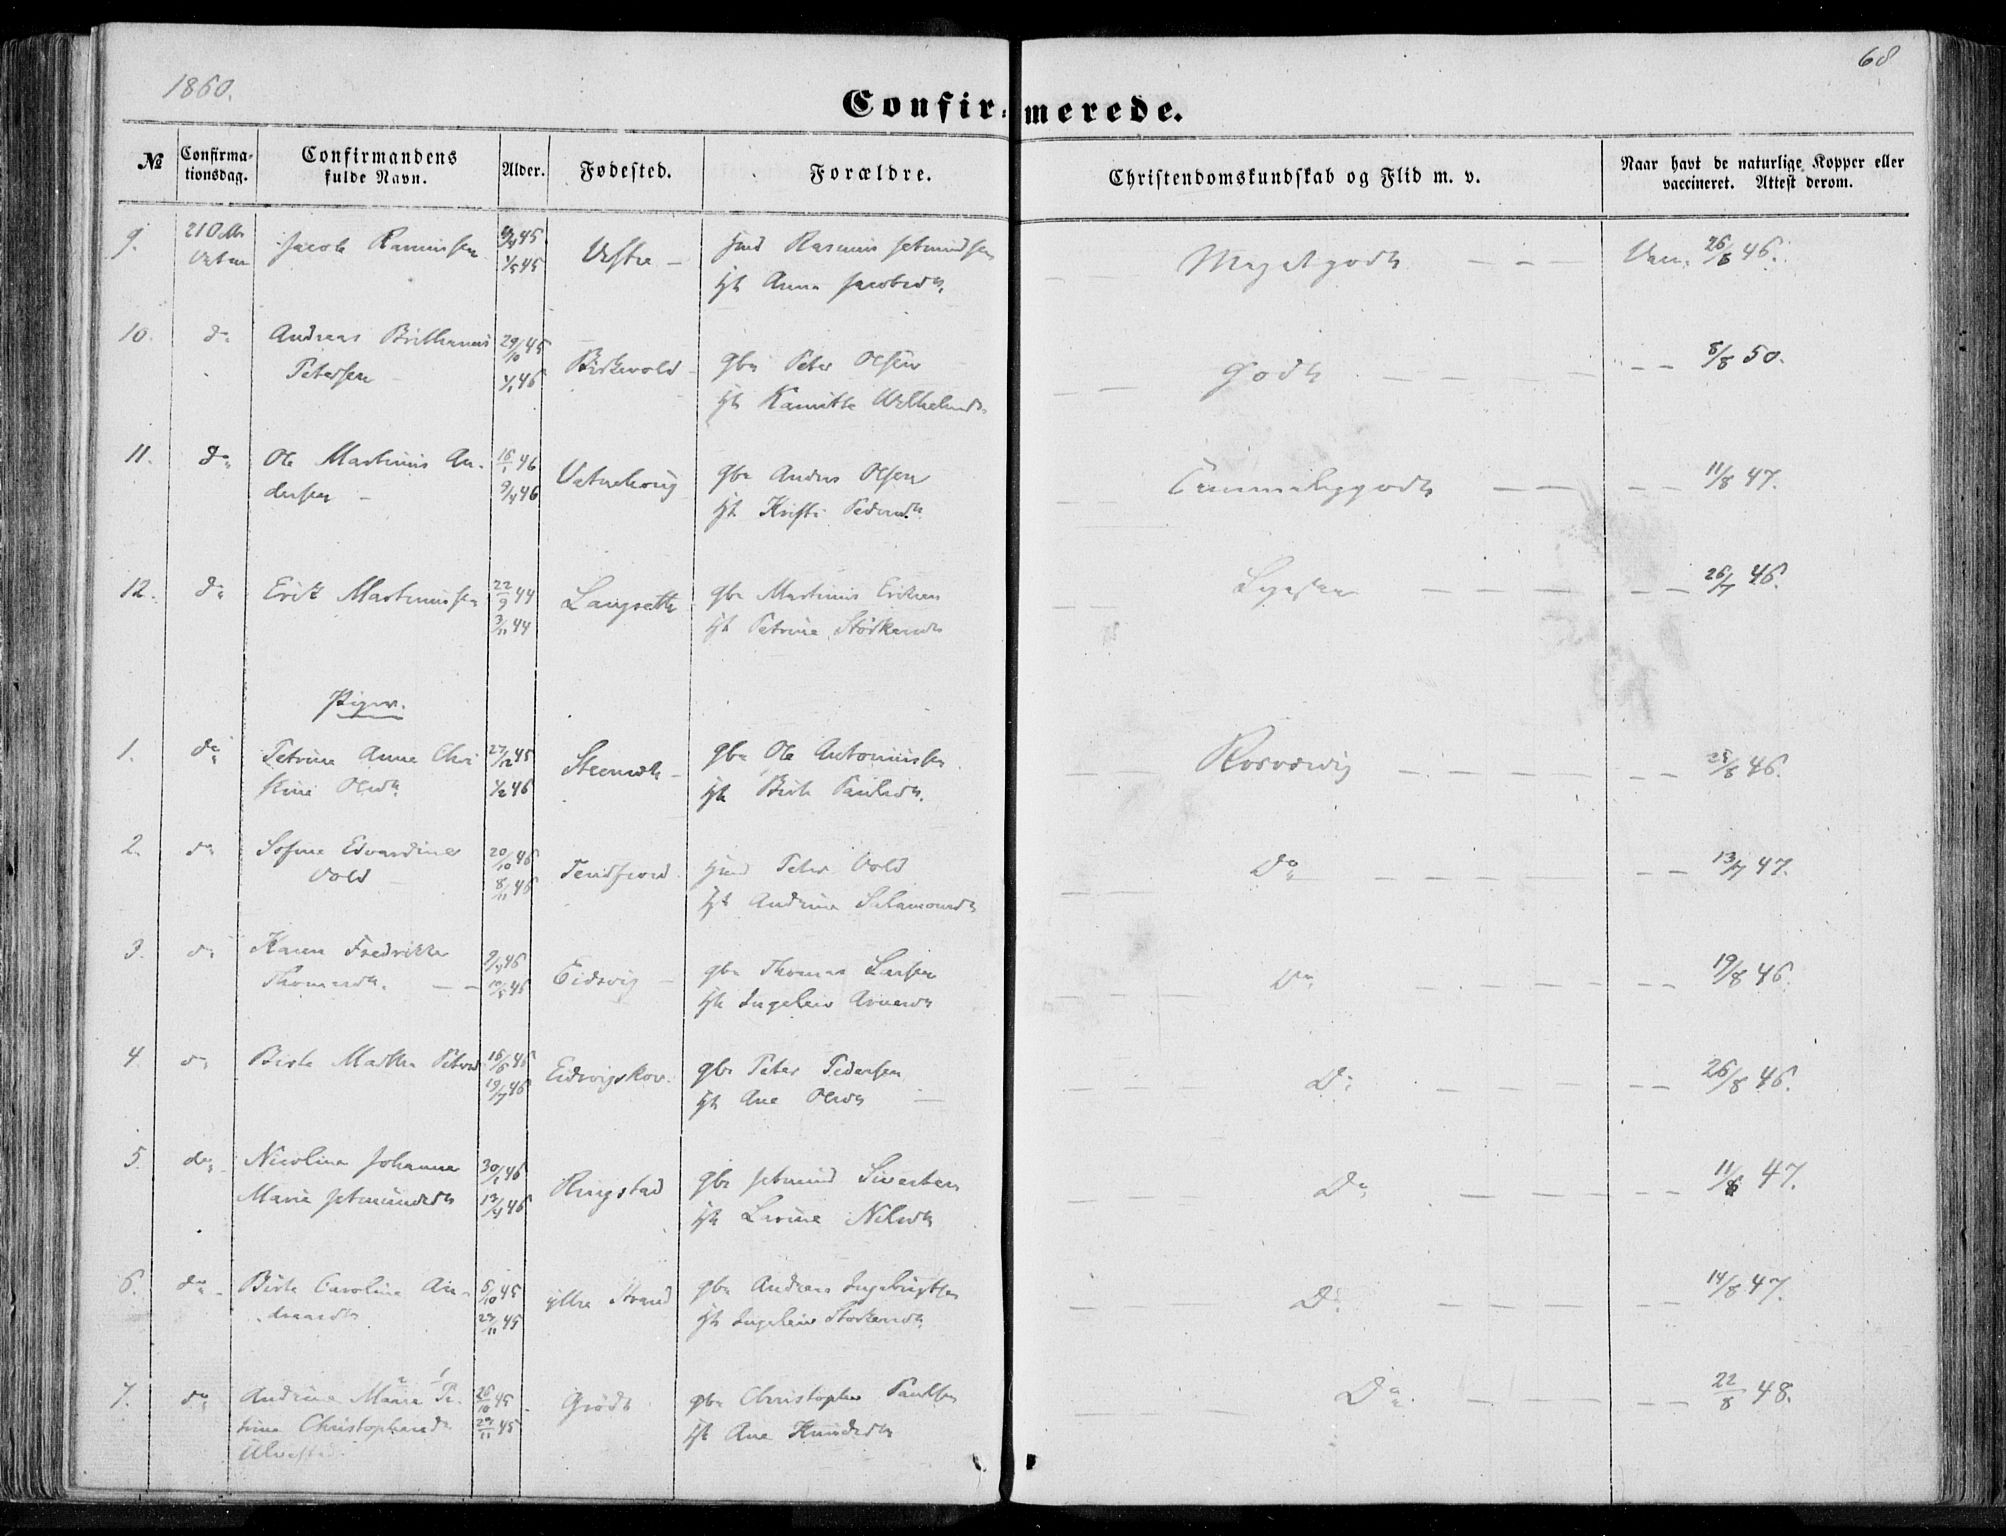 1860.
68
Confir- merede.
№
Confirma-
tionsdag.
Confirmandens
fulde Navn.
Alder.
Fødested.
Forældre.
Christendomskundskab og Flid m. v.
Naar havt de naturlige Kopper eller
vaccineret. Attest derom.
9. Jacob Rasmussen 1/5 45 Hmd Rasmus Jetmundsen
Hst Anna Jacobsdtr. Meget godt Vacc. 26/8 46.
10. do Andreas
Petersen 29/10 45 1/1 46 Birkevold Gbr Peter Olsen
Hst Godt 8/8 50.
11. do Ole Martinus An-
dersen 16/1 46 9/4 46 Vatnehoug Gbr Anders Olsen
Hst Kristi Pedersdtr Temmeliggodt 11/8 47.
12. do Erik Martinussen 22/9 44 3/11 44 Langseth Gbr Martinus Eriksen
Hst Petrine Størkersdtr 26/7 46.
Piger.
1. do Petrine Anne Chri-
stine Olsdtr 27/12 45 1/2 46 Gbr Ole Antoniussen
Hst Birte Paulsdtr. Rosværdig 25/8 46.
2. do Sofine Edvardine
Vold 20/10 45 8/11 45 Tennfjord Hmd Peter Vold
Hst Andrine Salamonsdtr Do 13/7 47.
3. do Karen Fredrikke
Thomasdtr. Eidsvig Gbr Thomas Larsen
Hst Ingeleiv Arnesdtr Do 19/8 46.
4. do Birte Marthe Petersd 16/6 46 19/7 46 Eidsvigskov. Gbr Peter Pedersen
Hst Ane Olsdtr Do 26/8 46.
5. do Nicoline Johanne
Marie Jetmundsdtr 30/1 46 13/4 46 Ringstad Gbr Jetmund Sivertsen
Hst Lovine Nilsdtr Do 11/8 47.
6. do Birte Caroline An-
dreasdtr 5/10 45 23/11 45 Ytre Strand Gbr Andreas Ingebrigtsen
Hst Ingeleiv Størkersdtr Do 14/8 47.
7. do Andrine Maria Pe-
trine Christophersdtr
Ulvestad 26/10 45 29/11 45 Grødt Gbr Christopher Paulsen
Hst Ane Knudsdtr Do 22/8 48.